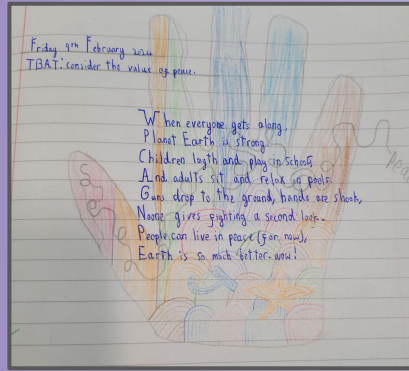 Friday 9th February 2024
TBAT: consider the value of peace.
When everyone gets along,
Planet Earth is strong
Children lagth and play in schools,
And adults sit and relax in pools.
Guns drop to the ground, hands are shook,
Noone gives fighting a second look.
People can live in peace (for now),
Earth is so much better. wow!